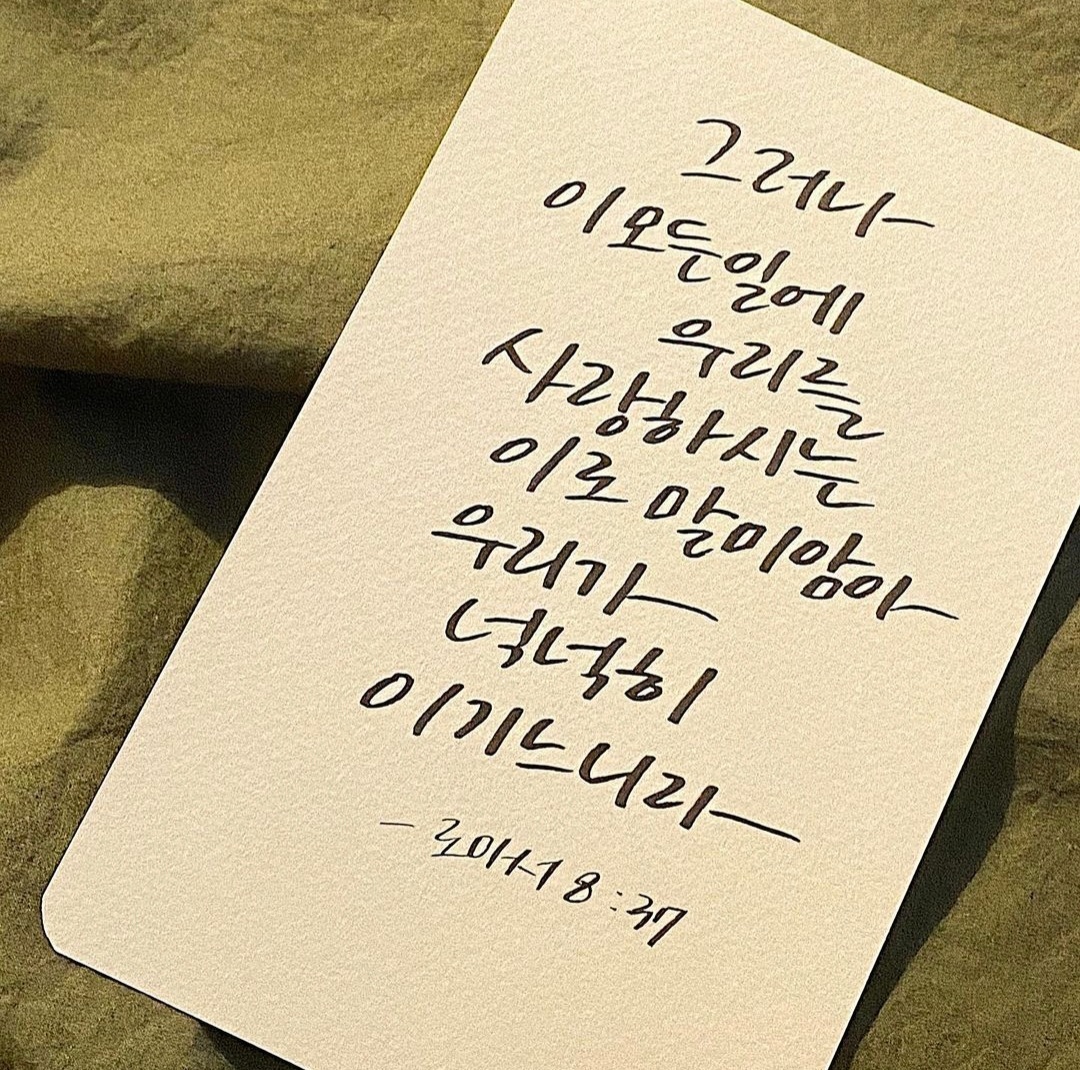 그러나
이 모든 일에
우리를
사랑하시는
이로 말미암아
우리가
넉넉히
이기느니라
- 로마서 8:37